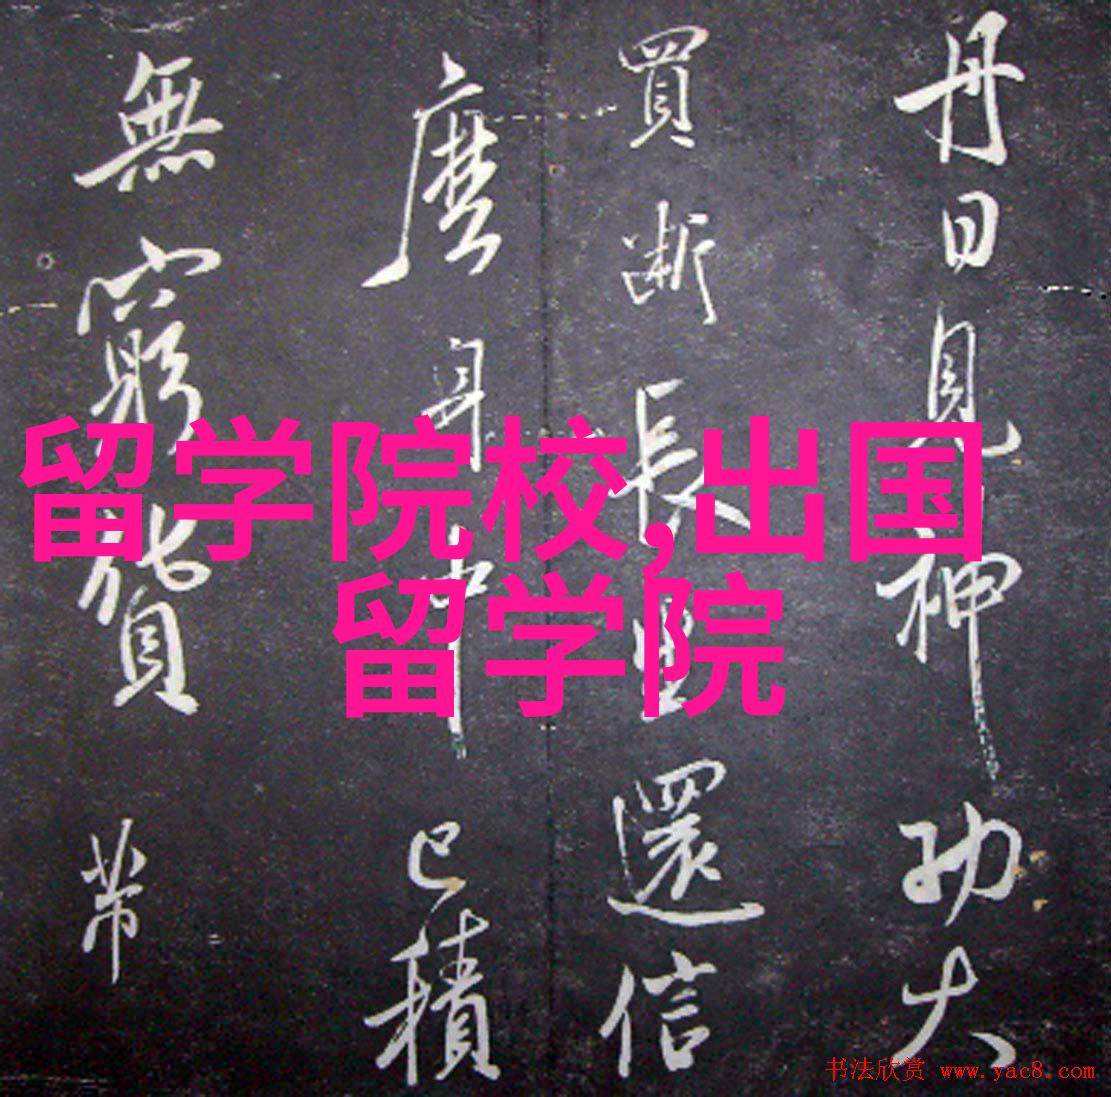 丹日見神功大
買斷長生還信
麼身中已積
無窮貨帶
留学院校,出国
留学院
书法欣赏 www.yac8.com